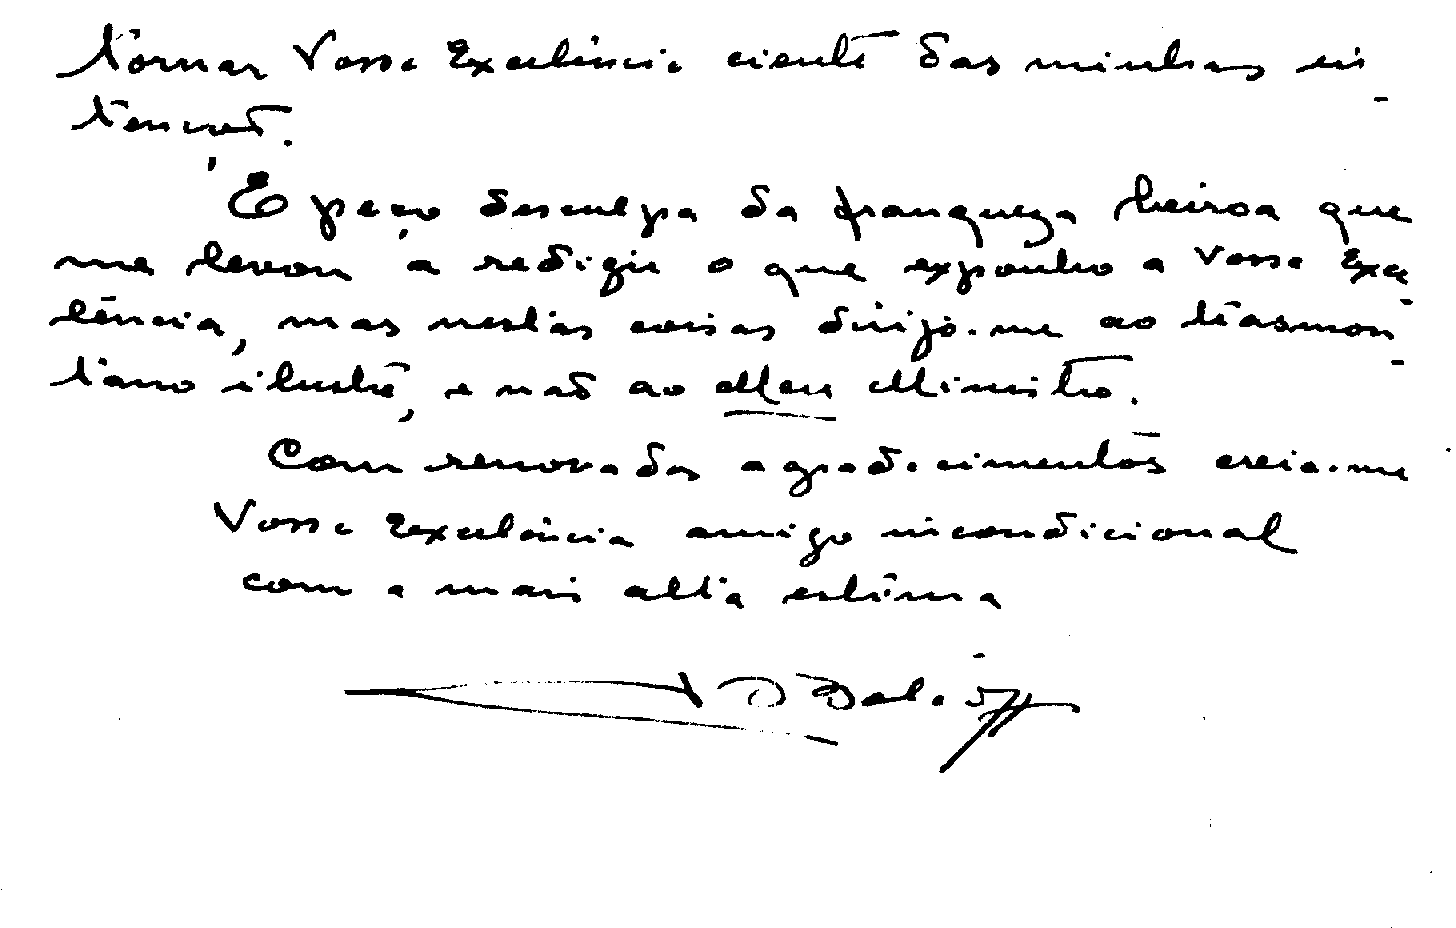 tornar Vossa Excelência ciente das minhas in-
tenções.
E peço desculpa da franqueza beiroa que
me levou a redigir o que exponho a Vossa Exce-
lência, mas nestas coisas dirijo-me ao trasmon-
tano ilustre, e não ao Meu Ministro.
Com renovados agradecimentos creia-me
Vossa Excelência amigo incondicional
com a mais alta estima